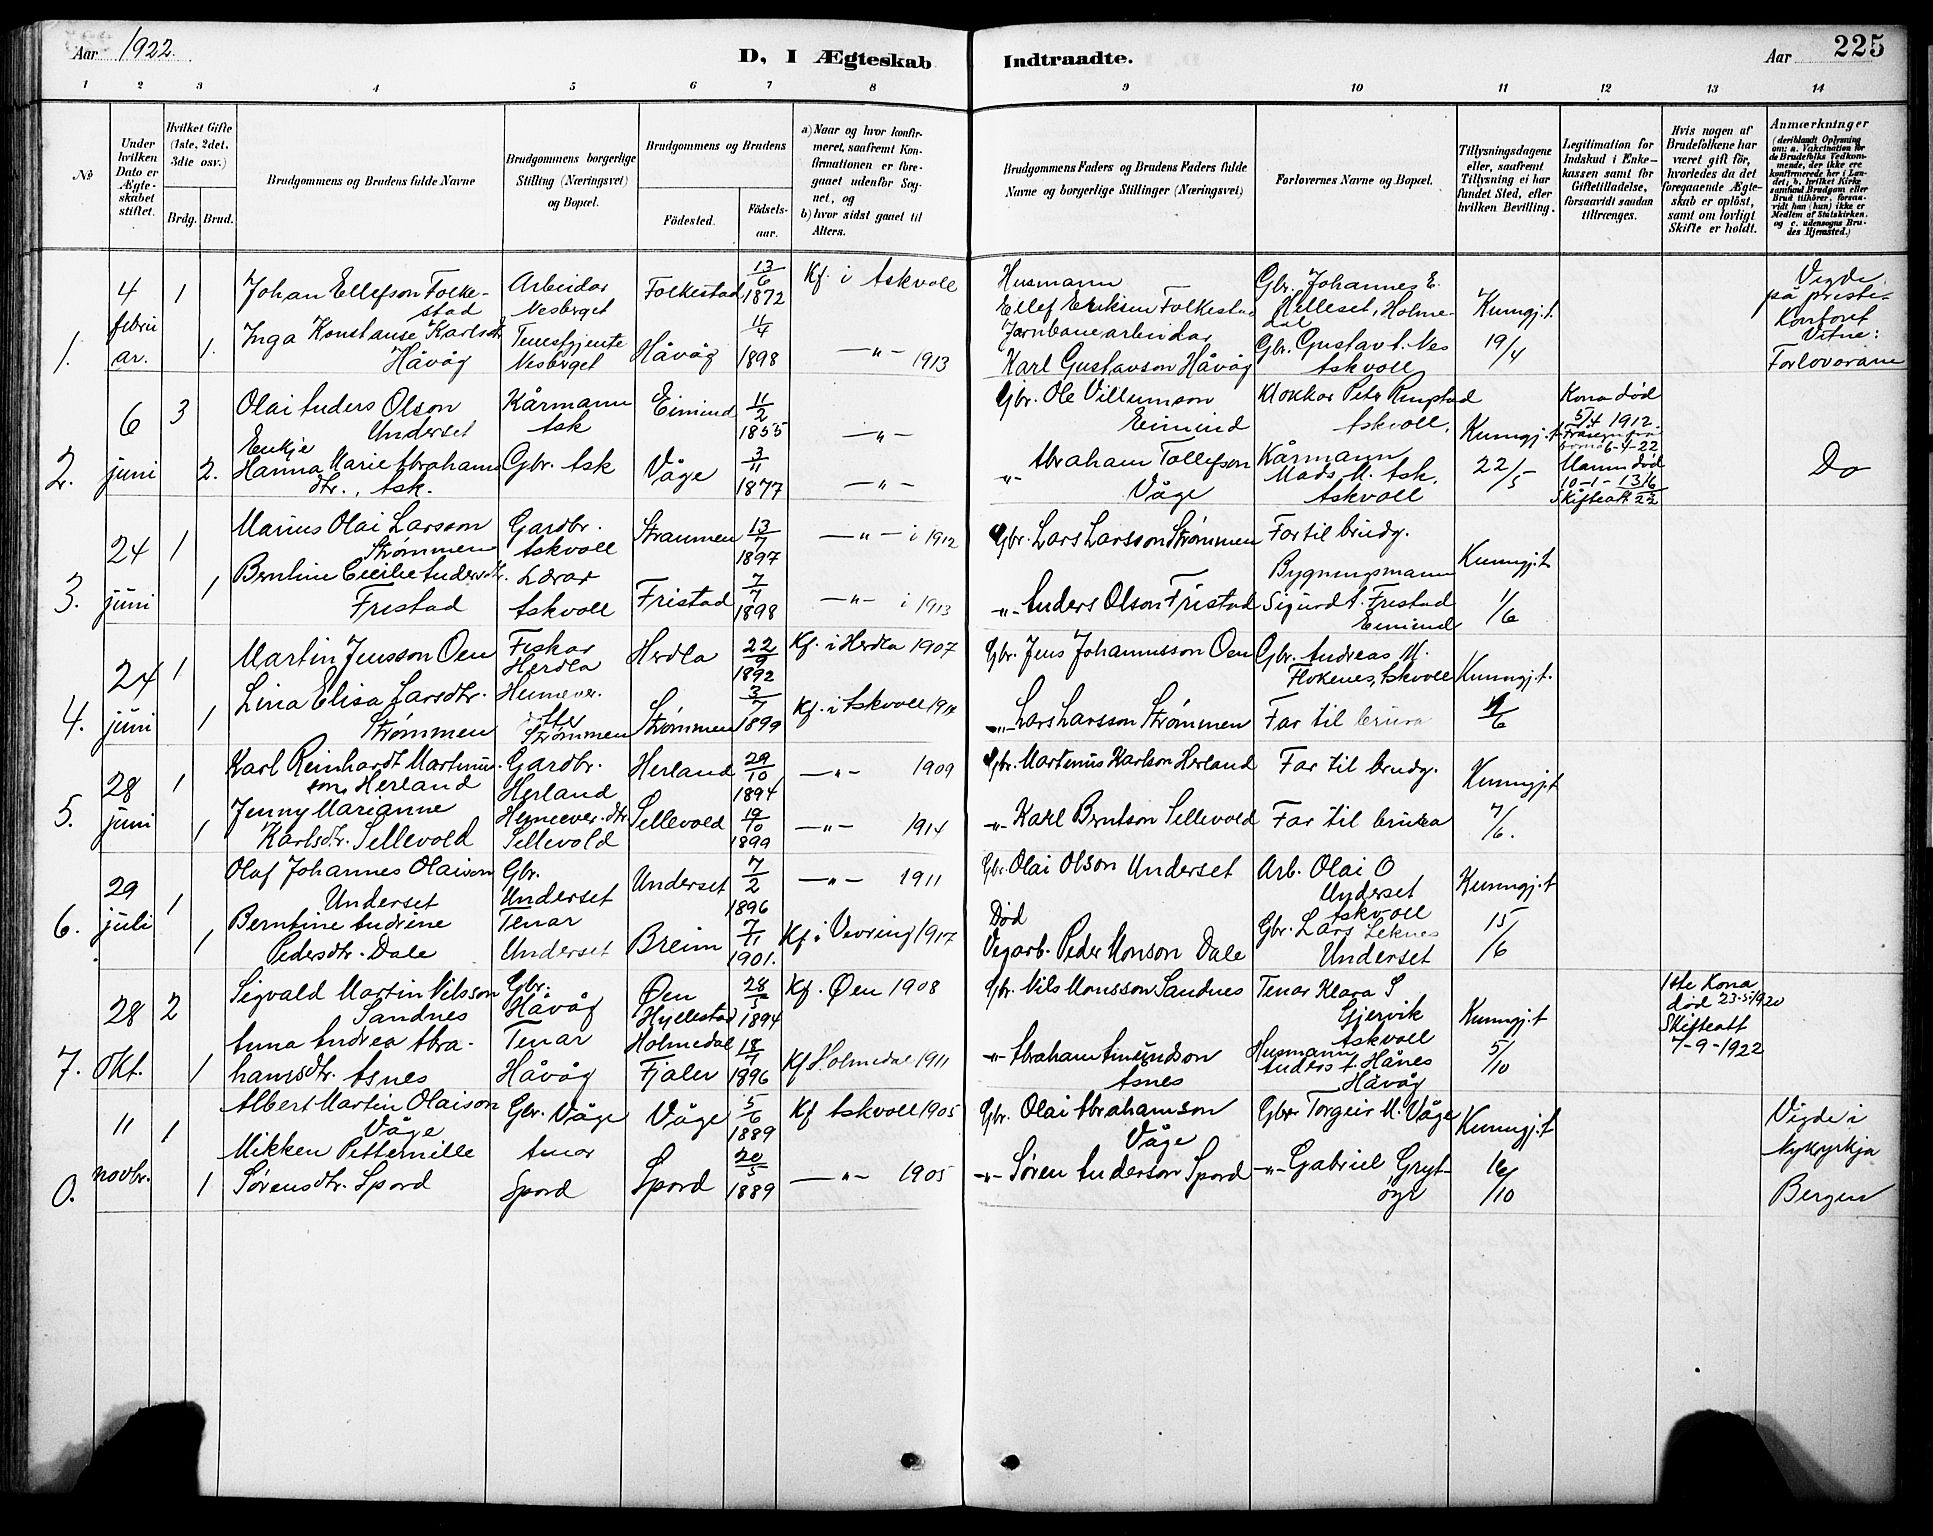 Aar 1922.
D, I Ægteskab Indtraadte.
Aar
225
1 2 3 4 5 6 7 8 9 10 11 12 13 14
No
Under hvilken Dato er Ægteskabet stiftet.
Hvilket Gifte (1ste, 2det, 3die osv.)
Brdg. Brud.
Brudgommens og Brudens fulde Navne
Brudgommens borgerlige Stilling (Næringsvei) og Bopæl.
Brudgommens og Brudens
Fødested.
Fødselsaar.
a) Naar og hvor konfirmeret, saafremt Konfirmationen er foregaaet udenfor Sognet, og
b) hvor sidst gaaet til Alters.
Brudgommens Faders og Brudens Faders fulde Navne og borgerlige Stillinger (Næringsvei)
Forlovernes Navne og Bopæl.
Tillysningsdagene eller, saafremt Tillysning ei har fundet Sted, efter hvilken Bevilling.
Legitimation for Indskud i Enkekassen samt for Giftetilladelse, forsaavidt saadan tiltrænges.
Hvis nogen af Brudefolkene har været gift før, hvorledes da det foregaaende Ægteskab er opløst, samt om lovligt Skifte er holdt.
Anmærkninger (deriblandt Oplysning om: a. Vakcination for de Brudefolks Vedkommende, der ikke ere konfirmerede her i Landet, b. hvilket Kirkesamfund Brudgom eller Brud tilhører, forsaavidt han (hun) ikke er Medlem af Statskirken, og c. udensogns Brudes Hjemsted.)
1. 4 februar. 1
Johan Ellefson Folkestad
Arbeidar Nesberget
Folkestad
13/6 1872
Kf. i Askvoll
Husmann Ellef Folkestad
Gbr. Johannes E. Helleset, Holmedal
Kunngj.t 19/4
Vigde på preste-Kontoret Vitne: Forlovarane
1.
Inga Konstanse Karlsdtr Håvåg
Nesberget
Håvåg
11/4 1898
—"— 1913
Jarnbanearbeidar Karl Gustavson Håvåg
Gbr. Gustav A. Nes Askvoll
2. 6 juni 3
Olai Anders Olson Underset
Kårmann Ask
Eimind
11/2 1855
—"—
Gbr. Ole Villumson Eimind
Klokkar Peter Askvoll.
Kunngj.t 22/5
Kona død 5/4 1912
Mann død 10-1-1316
Skifteatt.
Do
2.
Enkje Hanna Marie Abrahamsdtr., Ask.
Gbr. Ask
Våge
3/11 1877
—"—
"- Abraham Tollefson Våge
Kårmann Mads M. Ask. Askvoll
3. 24 juni 1
Marius Olai Larsson Strømmen
Gardbr. Askvoll
Straumen
13/7 1897
—"— i 1912
Gbr. Lars Larsson Strømmen
Far til brudg.
Kunngj.t 1/6
1
Berntine Cecilie Andersdtr. Fristad
Lærar Askvoll
Fristad
7/7 1898
—"— i 1913
"- Anders Olson Fristad
Bygningsmann Sigurd A. Fristad Eimind
4. 24 juni 1
Martin Jensson Oen
Fiskar Herdla
Herdla
22/9 1892
Kf. i Herdla 1907
Gbr. Jens Johannesson Oen
Gbr. Andreas M. Flokenes, Askvoll
Kunngj.t.
1
Lina Elisa Larsdtr. Strømmen
Strømmen
Strømmen
3/7 1899
Kf. i Askvoll
"- Lars Larsson Strømmen
Far til brura
5. 28 juni 1
Karl Reinhardt Martinusson, Herland
Gardbr. Herland
Herland
29/10 1894
—"— 1909
Gbr. Martinus Karlson Herland
Far til brudg.
Kunngj.t 7/6.
1
Jenny Marianne Karlsdtr. Sellevold
Sellevold
Sellevold
19/10 1899
—"— 1914
"- Karl Berntson Sellevold
Far til brura
6. 29 juli 1
Olaf Johannes Olaison Underset
Gbr. Underset
Underset
7/2 1896
—"— 1911
Gbr. Olai Olson Underset
Arb. Olai O Underset Askvoll
Kunngj.t 15/6
1
Berntine Andrine Pedersdtr. Dale
Tenar Underset
Breim
7/11 1901.
Kf. i Vevring 1917
Død Vegarb. Peder Monson Dale
Gbr. Lars Leknes Underset
7. 28 Okt. 2
Sigvald Martin Nilsson Sandnes
Gbr. Håvåg
Øen Hyllestad
28/5 1894
Kf. Øen 1908
Gbr. Nils Monsson Sandnes
Tenar Klara S Gjervik Askvoll
Kunngj.t 5/10
1ste Kona død 23-5-1920
Skifteatt 7-9-1922
1
Anna Andrea Abrahamsdtr. Åsnes
Tenar Håvåg
Holmedal Fjaler
18/7 1896
Kf Holmedal 1911
"- Abraham Amundson Åsnes
Husmann Anders A. Hånes Håvåg
0. 11 novbr. 1
Albert Martin Olaison Våge
Gbr. Våge
Våge
5/6 1889
Kf Askvoll 1905
Gbr. Olai Abrahamson Våge
Gbr. Torgeir M. Våge
Kunngj.t 16/10
Vigde i Nykyrkja Bergen
1
Mikken Petternille Sørensdtr. Spord
Spord
Spord
20/5 1889
—"— 1905
"- Søren Anderson Spord
"- Gabriel Grytøyr